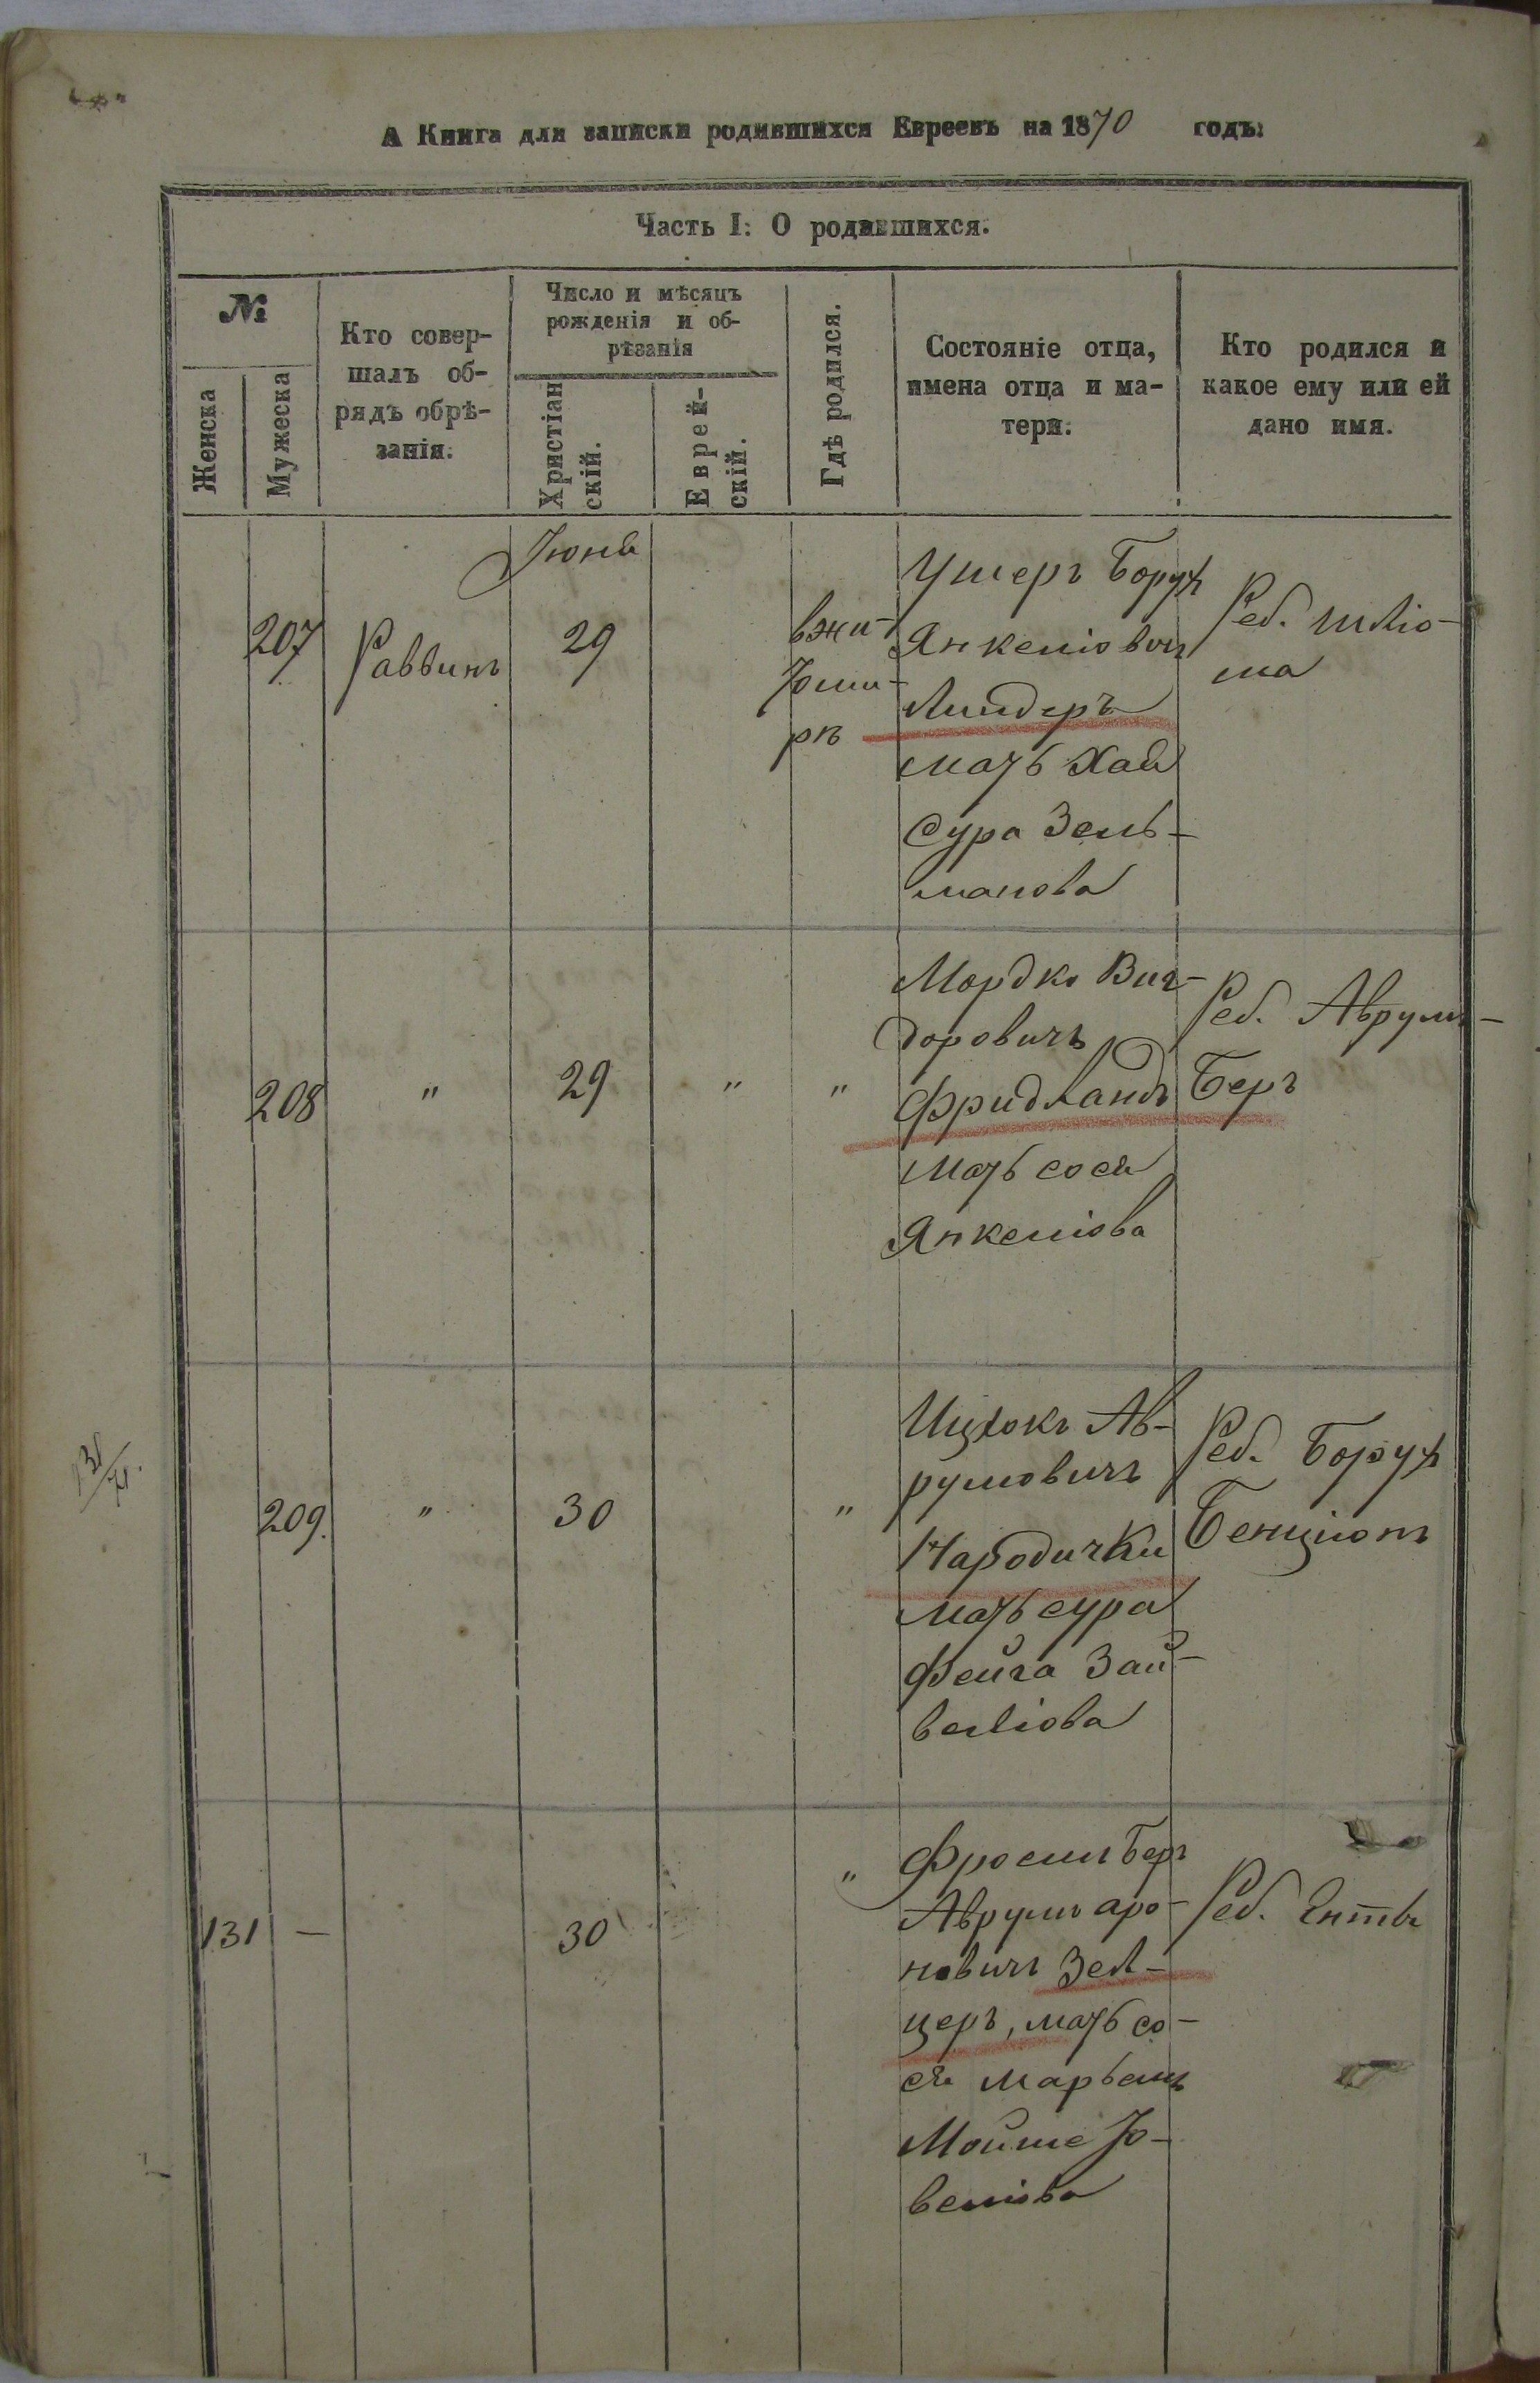 А Книга для записки родившихся Евреевъ на 1870 годъ:
Часть I: О родившихся.
№
Женска
Мужеска
Кто совер-
шалъ об-
рядъ обрѣ-
занія.
Число и мѣсяцъ
рожденія и об-
рѣзанія
Христіан
скій.
Еврей-
скій.
Гдѣ родился.
Состояніе отца,
имена отца и ма-
тери.
Кто родился и
какое ему или ей
дано имя.
Іюнь
207
Раввинъ
29
в жи-
томи-
рѣ
Ушеръ Борух
Янкеліовичъ
Линдеръ
мать Хая
Сура Зель-
манова
Реб. Шлio-
ма
208
"
29
"
"
Мордко Виг-
доровичъ
Фридландъ
мать Сося
Янкеліова
Реб. Аврумъ-
Беръ
209.
"
30
"
Ицхокъ Ав-
румовичъ
Народички
мать Сура
Фейга Зай-
веліова
Реб. Борух
Бенціонъ
131
—
30
"
Фроимъ Беръ
Аврумъ Аро-
новичъ Зел-
церъ, мать Со-
ся Марьемъ
Мойше Іо-
веліова
Реб. Энта